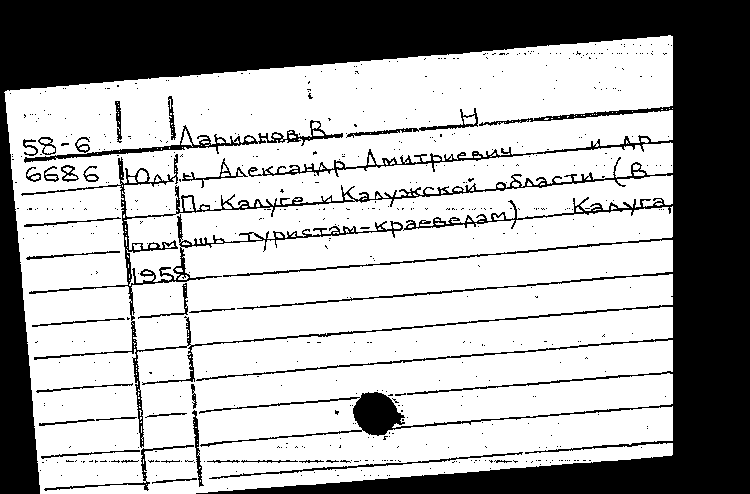 58-6 Ларионов, В Н
6686 Юдин, Александр Дмитриевич и др
По Калуге и Калужской области (В
помощь туристам-краеведам) Калуга,
1958